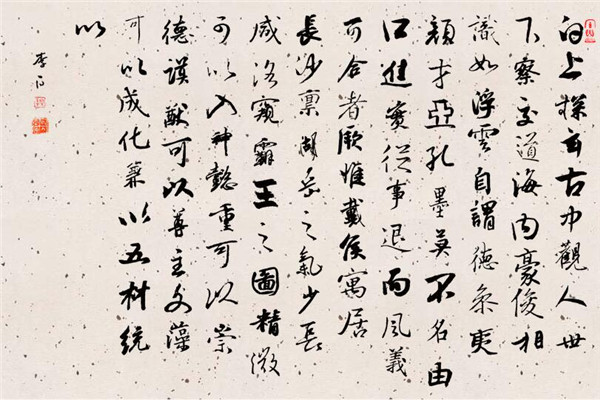 白上探玄古中觀人世
下察交道海内豪俊相
識如浮雲自謂德參夷
顏才亞孔墨莫不名由
口進實從事退而風義
可合者厥惟戴侯寓居
長沙禀湖岳之氣少長
咸洛窺霸王之圖精微
可以入神懿重可以崇
德謨猷可以尊主文藻
可以成化兼以五材統
以
李白